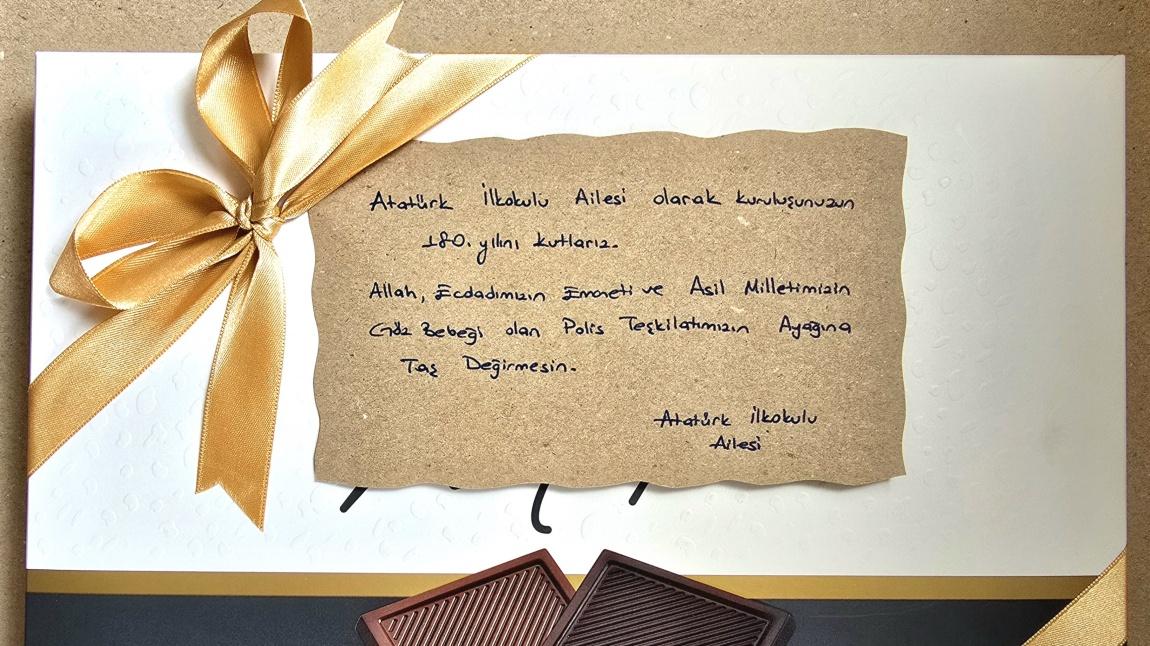 Atatürk İlkokulu Ailesi olarak kuruluşunuzun
180. yılını kutlarız.
Allah, Ecdadımızın Emaneti ve Asil Milletimizin
Göz Bebeği olan Polis Teşkilatımızın Ayağına
Taş Değirmesin.
Atatürk İlkokulu
Ailesi